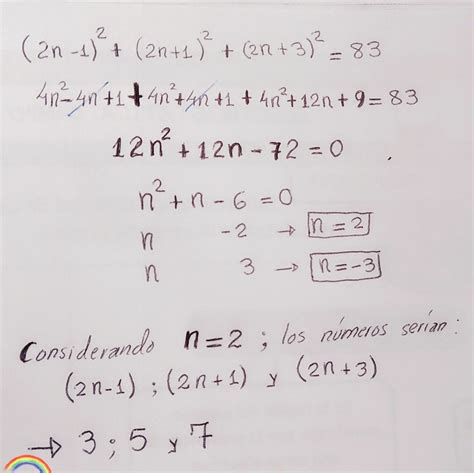 (2n-1)² + (2n+1)² + (2n+3)² = 83
4n²-4n+1+4n²+4n+1+4n²+12n+9=83
12n²+12n-72=0
n²+n-6=0
n -2 → n=2
n 3 → n=-3
Considerando n=2; los números serían:
(2n-1); (2n+1) y (2n+3)
→ 3; 5 y 7